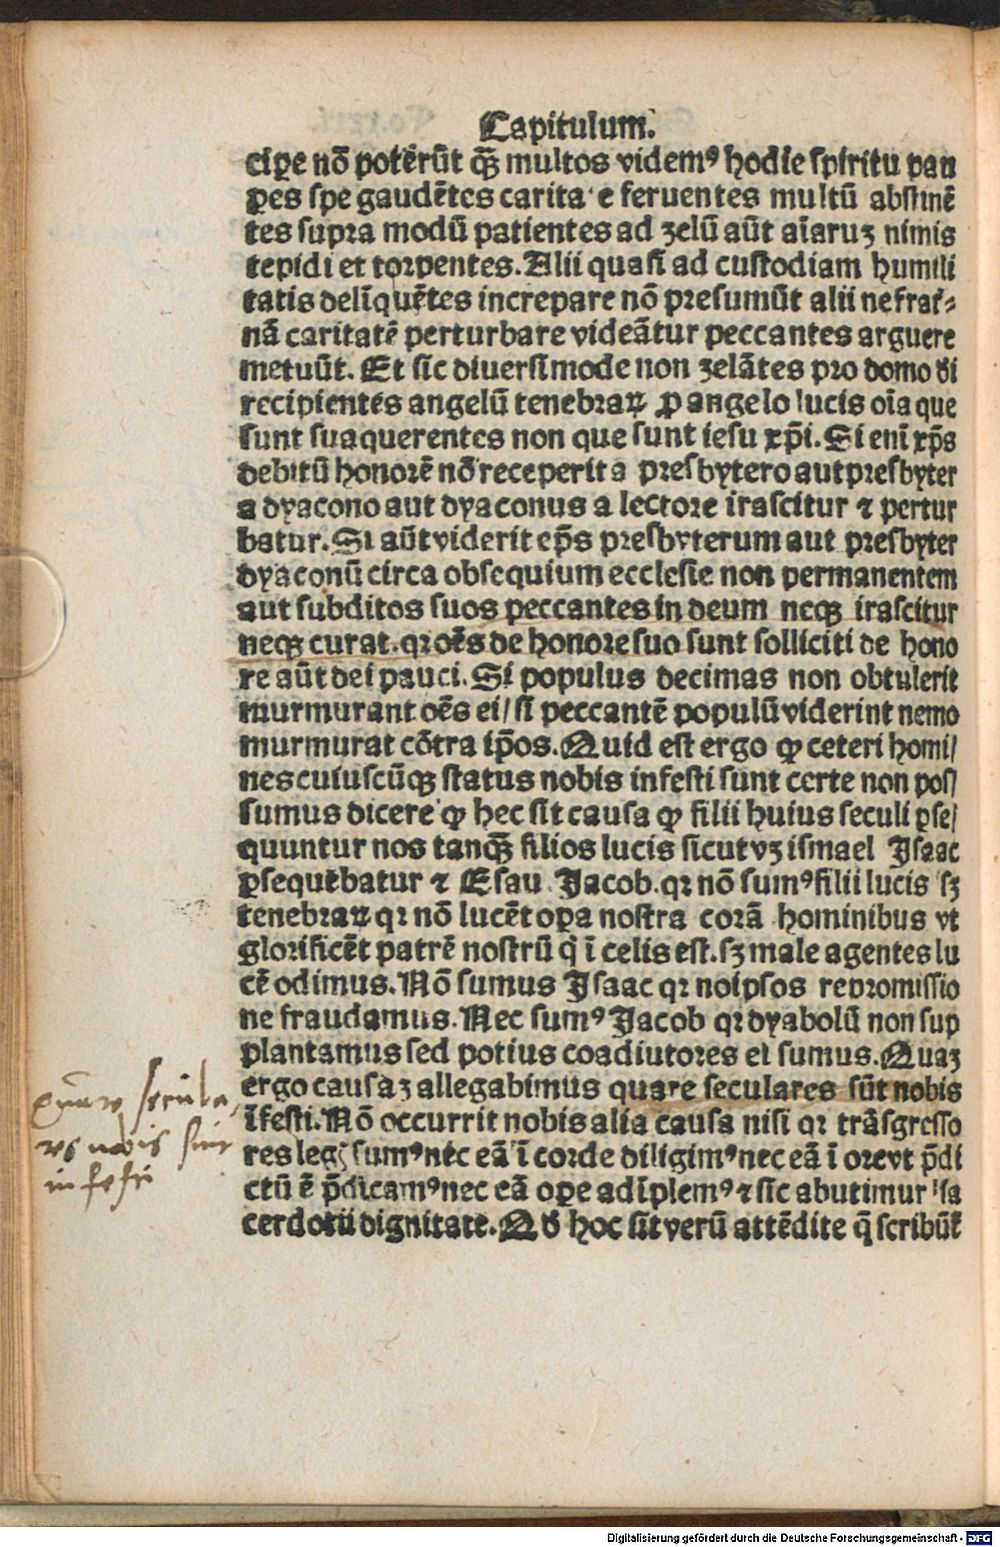 Capitulum.
cipe nō potērūt qꝫ̄ multos videmꝰ hodie spiritu pau
ꝑes spe gaudētes carita e feruentes multū abstinē
tes supra modū patientes ad zelū aūt aīaruꝫ nimis
tepidi et torpentes. Alii quasi ad custodiam humili
tatis delīquētes increpare nō presumūt alii ne frat̄⸗
nā caritatē perturbare videātur peccantes arguere
metuūt. Et sic diuersimode non zelātes pro domo dī
recipientes angelū tenebraꝝ ꝓ angelo lucis oīa que
sunt sua querentes non que sunt iesu xp̄i. Si enī xp̄s
debitū honorē nō receperit a presbytero aut presbyter
a dyacono aut dyaconus a lectore irascitur ⁊ pertur
batur. Si aūt viderit ep̄s presbyterum aut presbyter
dyaconū circa obsequium ecclesie non permanentem
aut subditos suos peccantes in deum neqꝫ irascitur
neqꝫ curat. qꝛ oēs de honore suo sunt solliciti de hono
re aūt dei pauci. Si populus decimas non obtulerit
murmurant oēs ei/ si peccantē populū viderint nemo
murmurat cōtra ip̄os. Quid est ergo ꝙ ceteri homi/
nes cuiuscūqꝫ status nobis infesti sunt certe non pos/
sumus dicere ꝙ hec sit causa ꝙ filii huius seculi ꝑse/
quuntur nos tanqꝫ̄ filios lucis sicut vꝫ ismael Isaac
ꝑsequebatur ⁊ Esau Jacob. qꝛ nō sumꝰ filii lucis sꝫ
tenebraꝝ qꝛ nō lucēt oꝑa nostra corā hominibus vt
glorificēt patrē nostrū q̇ ī celis est. sꝫ male agentes lu
cē odimus. Nō sumus Isaac qꝛ noipsos repromissio
ne fraudamus. Nec sumꝰ Jacob qꝛ dyabolū non sup
plantamus sed potius coadiutores ei sumus. Quaꝫ
ergo causaꝫ allegabimus quare seculares sūt nobis
īfesti. Nō occurrit nobis alia causa nisi qꝛ trāsgresso
res legꝭ sumꝰ nec eā ī corde diligimꝰ nec eā ī ore vt p̄di
ctū ē p̄dicamꝰ nec eā oꝑe adīplemꝰ ⁊ sic abutimur sa
cerdotii dignitate. Qđ hoc sit verū attēdite q̄ scribūt̄
quare secula
res nobis sint
infesti
Digitalisierung gefördert durch die Deutsche Forschungsgemeinschaft - DFG